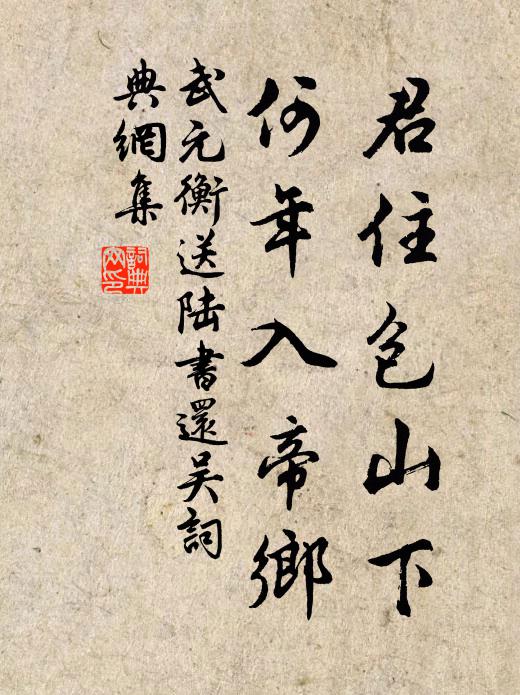 君住包山下
何年入帝鄉
武元衡送陸書還吳詞
典網集
詞典
网印